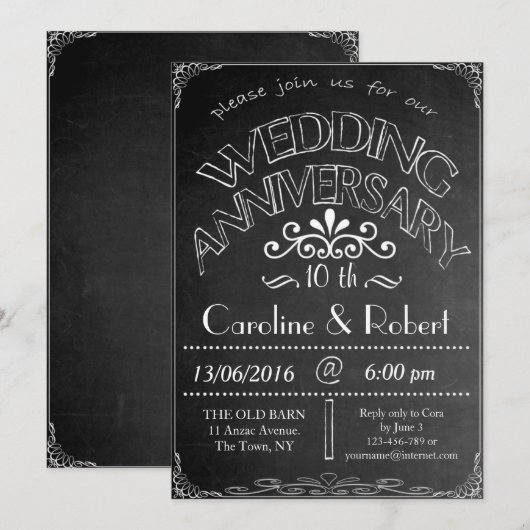 please join us for our
WEDDING
ANNIVERSARY
10 th
Caroline & Robert
13/06/2016 @ 6:00 pm
THE OLD BARN
11 Anzac Avenue.
The Town, NY
Reply only to Cora
by June 3
123-456-789 or
yourname@internet.com